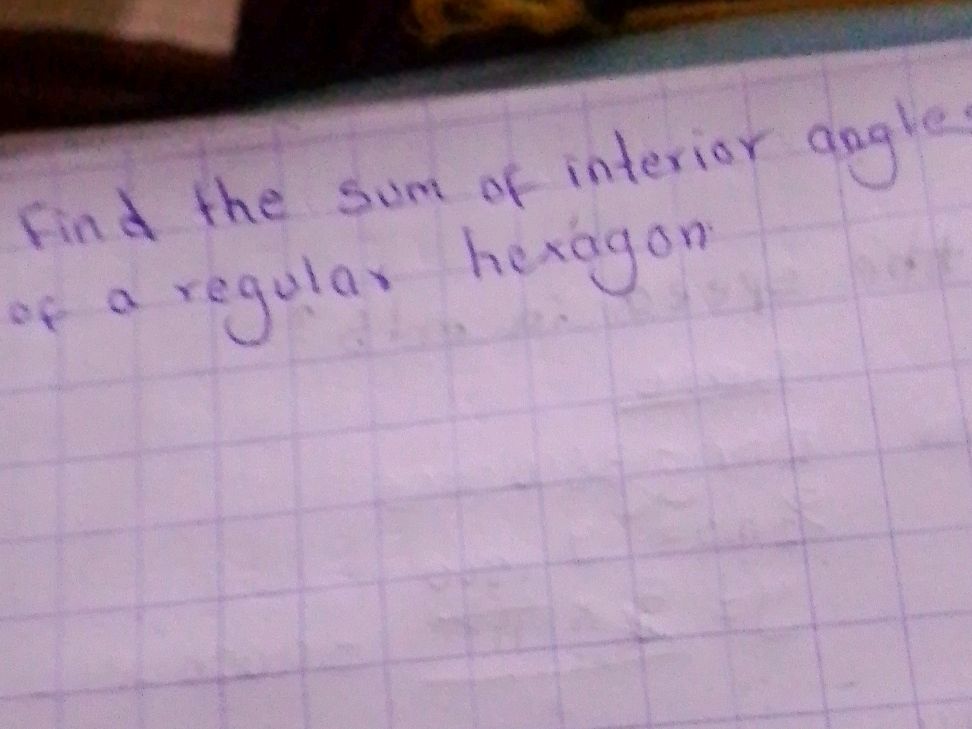 Find the sum of interior angles
of a regular hexagon